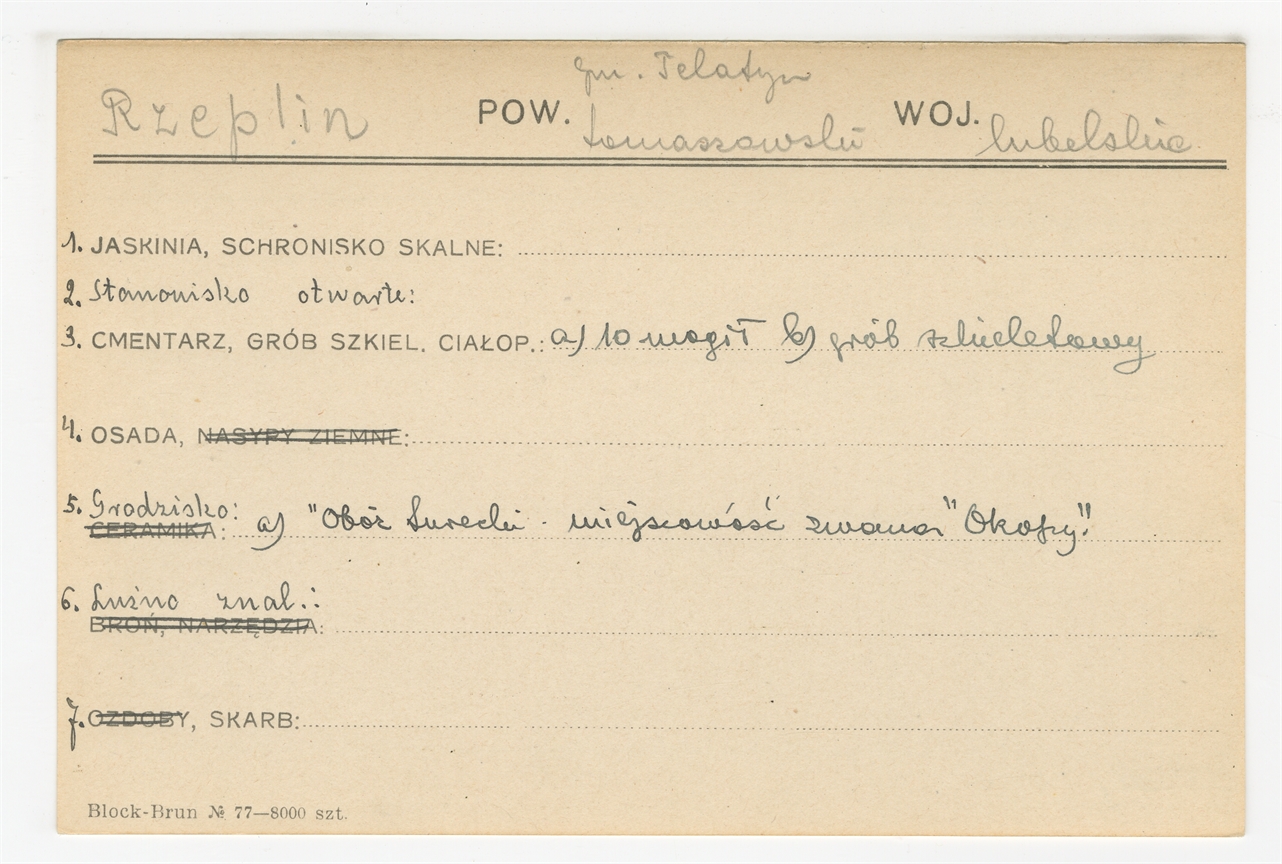 gm. Telatyn
Rzeplin POW. tomaszowski WOJ. lubelskie
1. JASKINIA, SCHRONISKO SKALNE:
2. Stanowisko otwarte:
3. CMENTARZ, GRÓB SZKIEL. CIAŁOP.: a) 10 mogił b) grób szkieletowy
4. OSADA, NASYPY ZIEMNE:
5. Grodzisko:
CERAMIKA: a) "Obóz turecki - miejscowość zwana "Okopy".
6. Luźno znal.:
BROŃ, NARZĘDZIA:
7. OZDOBY, SKARB:
Block-Brun № 77—8000 szt.